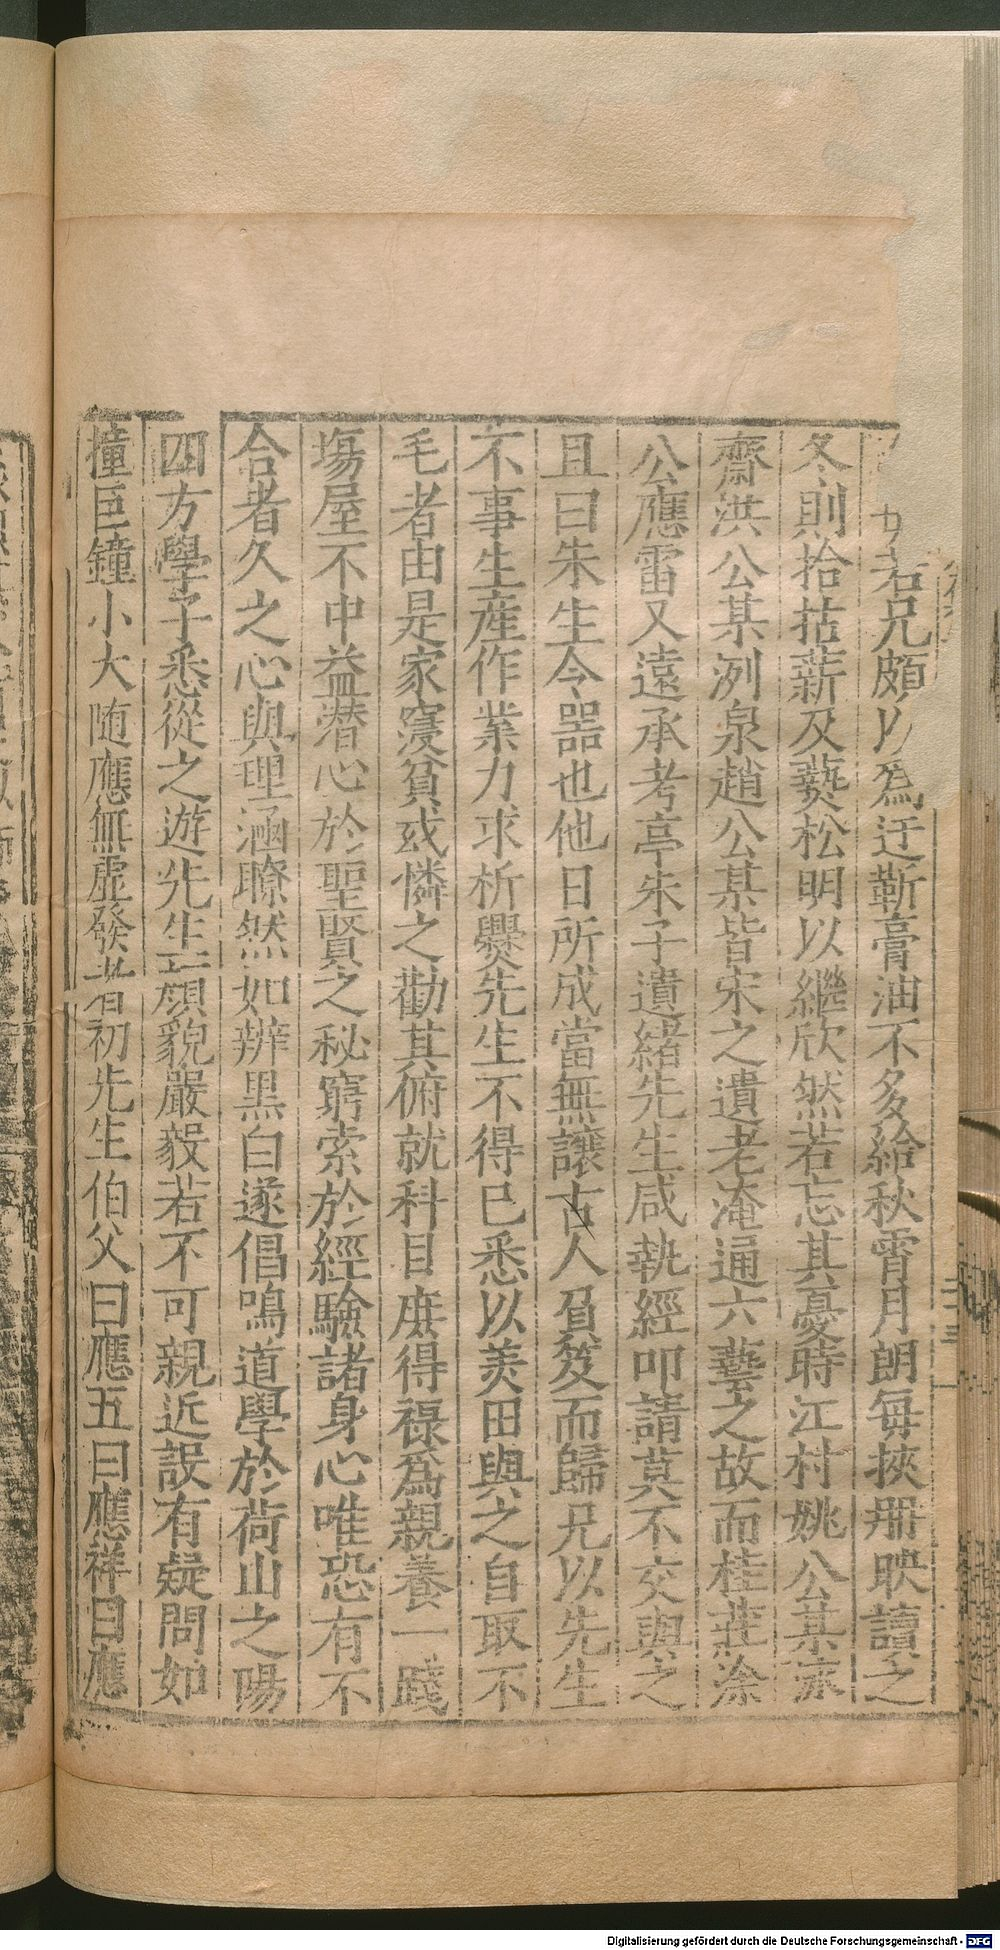 若兄頗以為迂靳膏油不多給秋霄月朗每挾冊映讀之
冬則拾枯薪及爇松明以繼欣然若忘其憂時江村姚公某家
齋洪公某洌泉趙公某皆宋之遺老淹通六藝之故而桂莊涂
公應雷又遠承考亭朱子遺緒先生咸執經叩請莫不交與之
且曰朱生令器也他日所成當無讓古人負笈而歸兄以先生
不事生產作業力求析爨先生不得已悉以美田與之自取不
毛者由是家窶貧或憐之勸其俯就科目庶得祿為親養一踐
塲屋不中益潜心於聖賢之秘窮索於經驗諸身心唯恐有不
合者久之心與理涵瞭然如辨黑白遂倡鳴道學於荷山之陽
四方學子悉從之遊先生顏貌嚴毅若不可親近誤有疑問如
撞巨鐘小大随應無虛發者初先生伯父曰應五曰應祥曰應
Digitalisierung gefördert durch die Deutsche Forschungsgemeinschaft - DFG